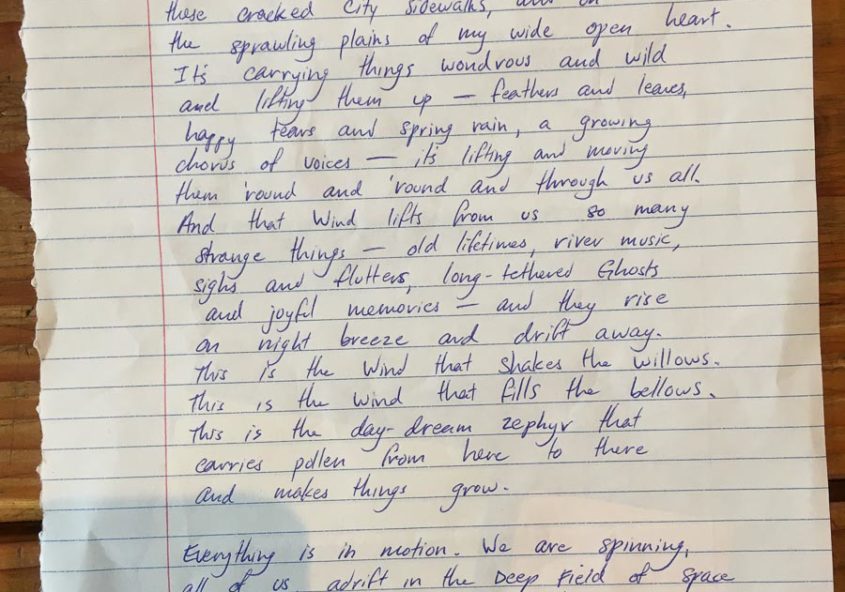 these cracked City Sidewalks, and on
the sprawling plains of my wide open heart.
It's carrying things wondrous and wild
and lifting them up — feathers and leaves,
happy tears and spring rain, a growing
chorus of voices — it's lifting and moving
them 'round and 'round and through us all.
And that Wind lifts from us so many
strange things — old lifetimes, river music,
sighs and flutters, long-tethered Ghosts
and joyful memories — and they rise
on night breeze and drift away.
This is the Wind that shakes the willows.
This is the wind that fills the bellows.
This is the day-dream zephyr that
carries pollen from here to there
and makes things grow.
Everything is in motion. We are spinning,
all of us, adrift in the Deep Field of Space